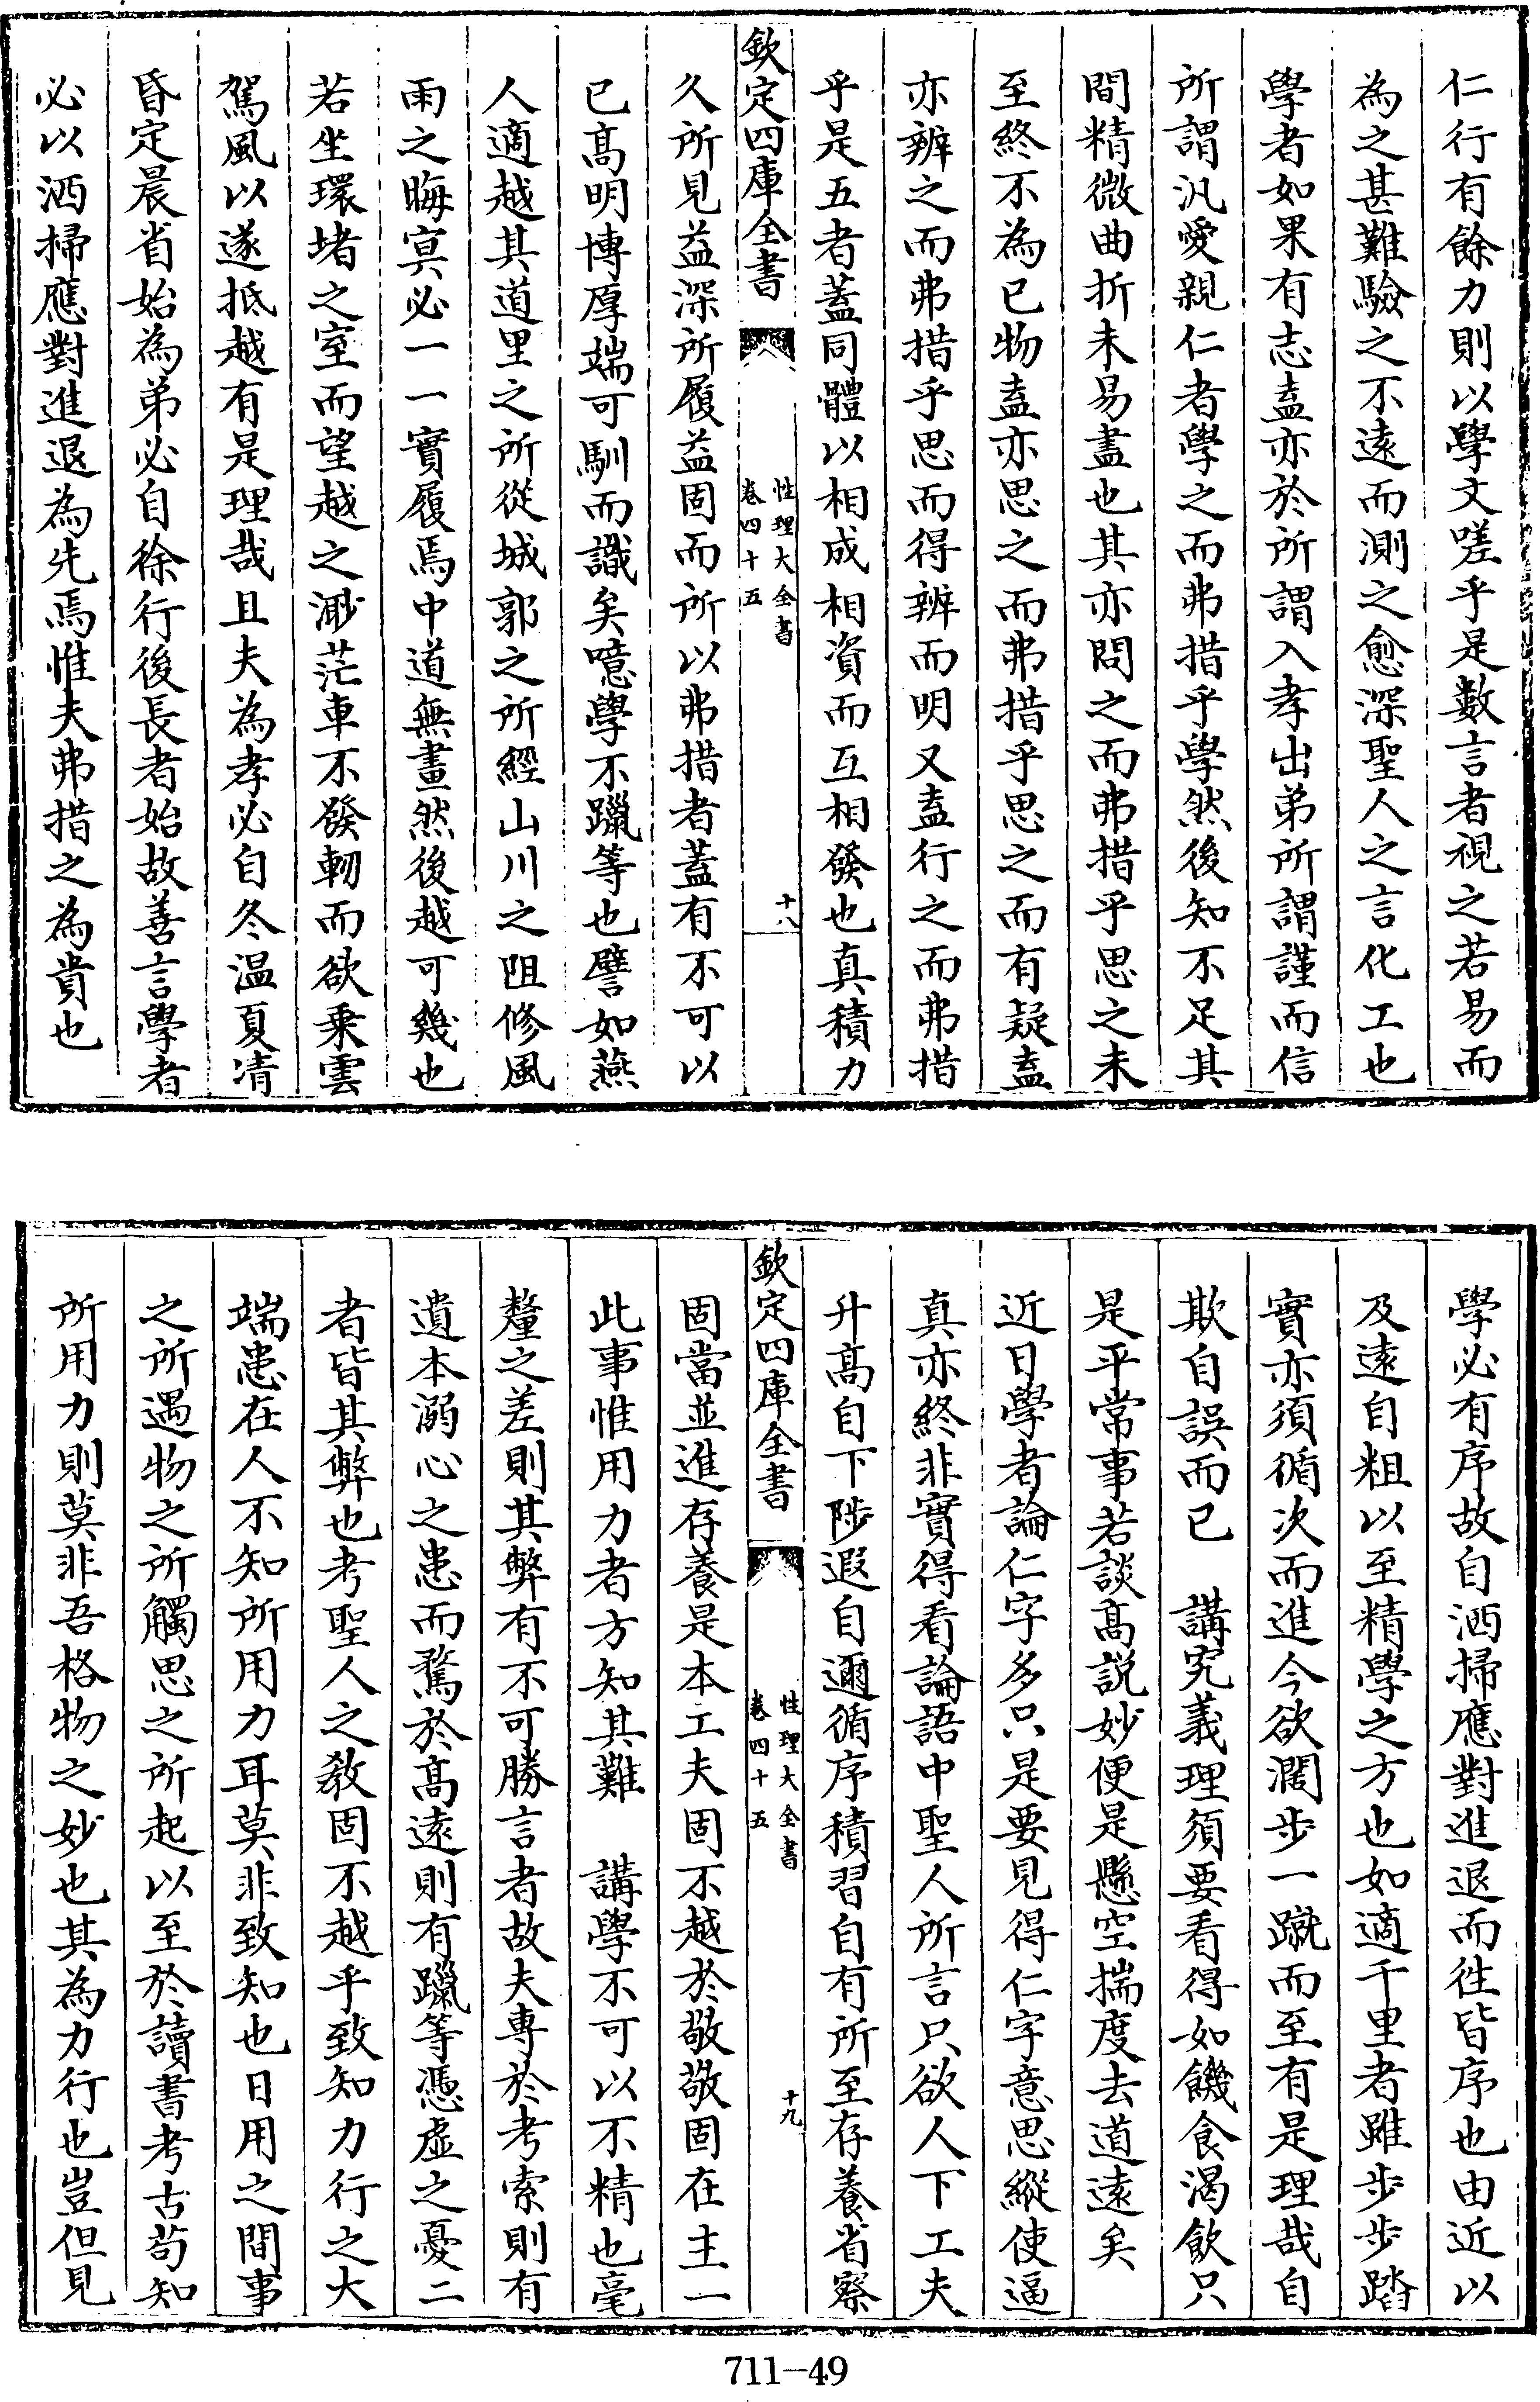 仁行有餘力則以學文嗟乎是數言者視之若易而
為之甚難驗之不遠而測之愈深聖人之言化工也
學者如果有志盍亦於所謂入孝出弟所謂謹而信
所謂汎愛親仁者學之而弗措乎學然後知不足其
間精微曲折未易盡也其亦問之而弗措乎思之未
至終不為已物盍亦思之而弗措乎思之而有疑盍
亦辨之而弗措乎思而得辨而明又盍行之而弗措
乎是五者蓋同體以相成相資而互相發也真積力
欽定四庫全書
性理大全書
卷四十五
十八
久所見益深所履益固而所以弗措者蓋有不可以
已髙明博厚端可馴而識矣噫學不躐等也譬如燕
人適越其道里之所從城郭之所經山川之阻修風
雨之晦㝠必一一實履焉中道無畫然後越可幾也
若坐環堵之室而望越之渺茫車不發軔而欲乗雲
駕風以遂抵越有是理哉且夫為孝必自冬温夏凊
昏定晨省始為弟必自徐行後長者始故善言學者
必以洒掃應對進退為先焉惟夫弗措之為貴也
學必有序故自洒掃應對進退而徃皆序也由近以
及遠自粗以至精學之方也如適千里者雖步步踏
實亦須循次而進今欲濶步一蹴而至有是理哉自
欺自誤而已　講究義理須要看得如饑食渴飲只
是平常事若談髙説妙便是懸空揣度去道遠矣
近日學者論仁字多只是要見得仁字意思縱使逼
真亦終非實得看論語中聖人所言只欲人下工夫
升髙自下陟遐自邇循序積習自有所至存養省察
欽定四庫全書
性理大全書
卷四十五
十九
固當並進存養是本工夫固不越於敬敬固在主一
此事惟用力者方知其難　講學不可以不精也毫
釐之差則其弊有不可勝言者故夫專於考索則有
遺本溺心之患而騖於髙遠則有躐等憑虛之憂二
者皆其弊也考聖人之教固不越乎致知力行之大
端患在人不知所用力耳莫非致知也日用之間事
之所遇物之所觸思之所起以至於讀書考古茍知
所用力則莫非吾格物之妙也其為力行也豈但見
711-49